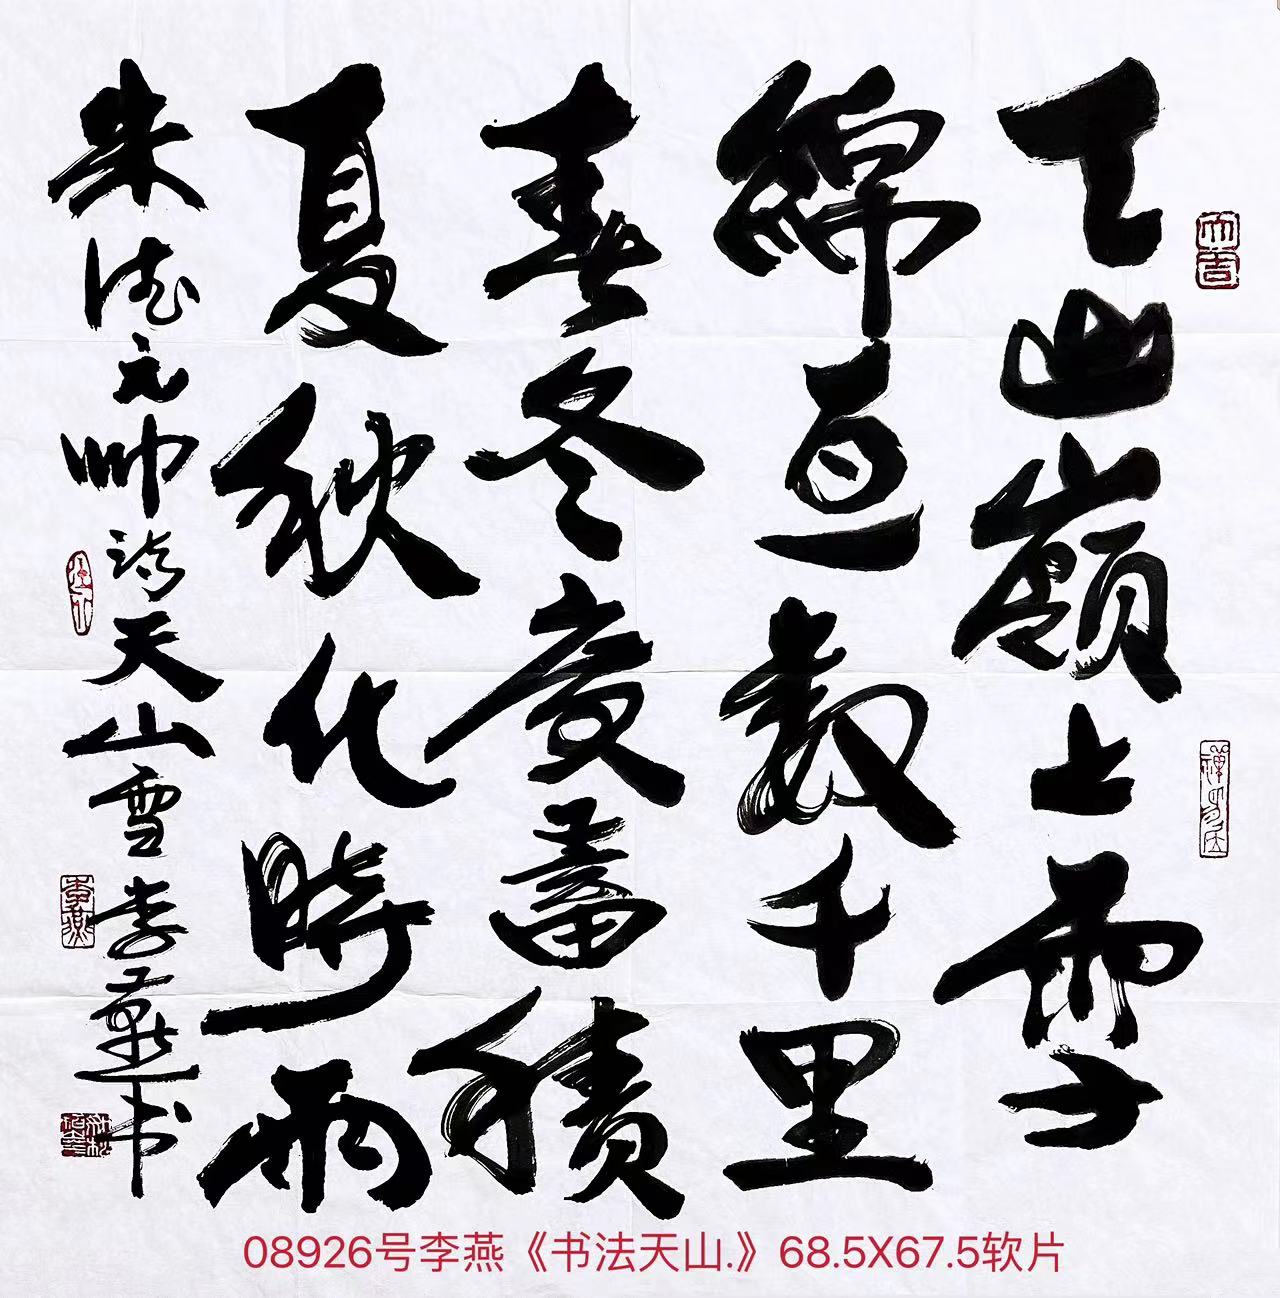 天山嶺上雪
綿亘數千里
春冬廣蓄積
夏秋化時雨
朱德元帥诗天山雪李燕书
大吉
李燕
08926号李燕《书法天山.》68.5X67.5软片